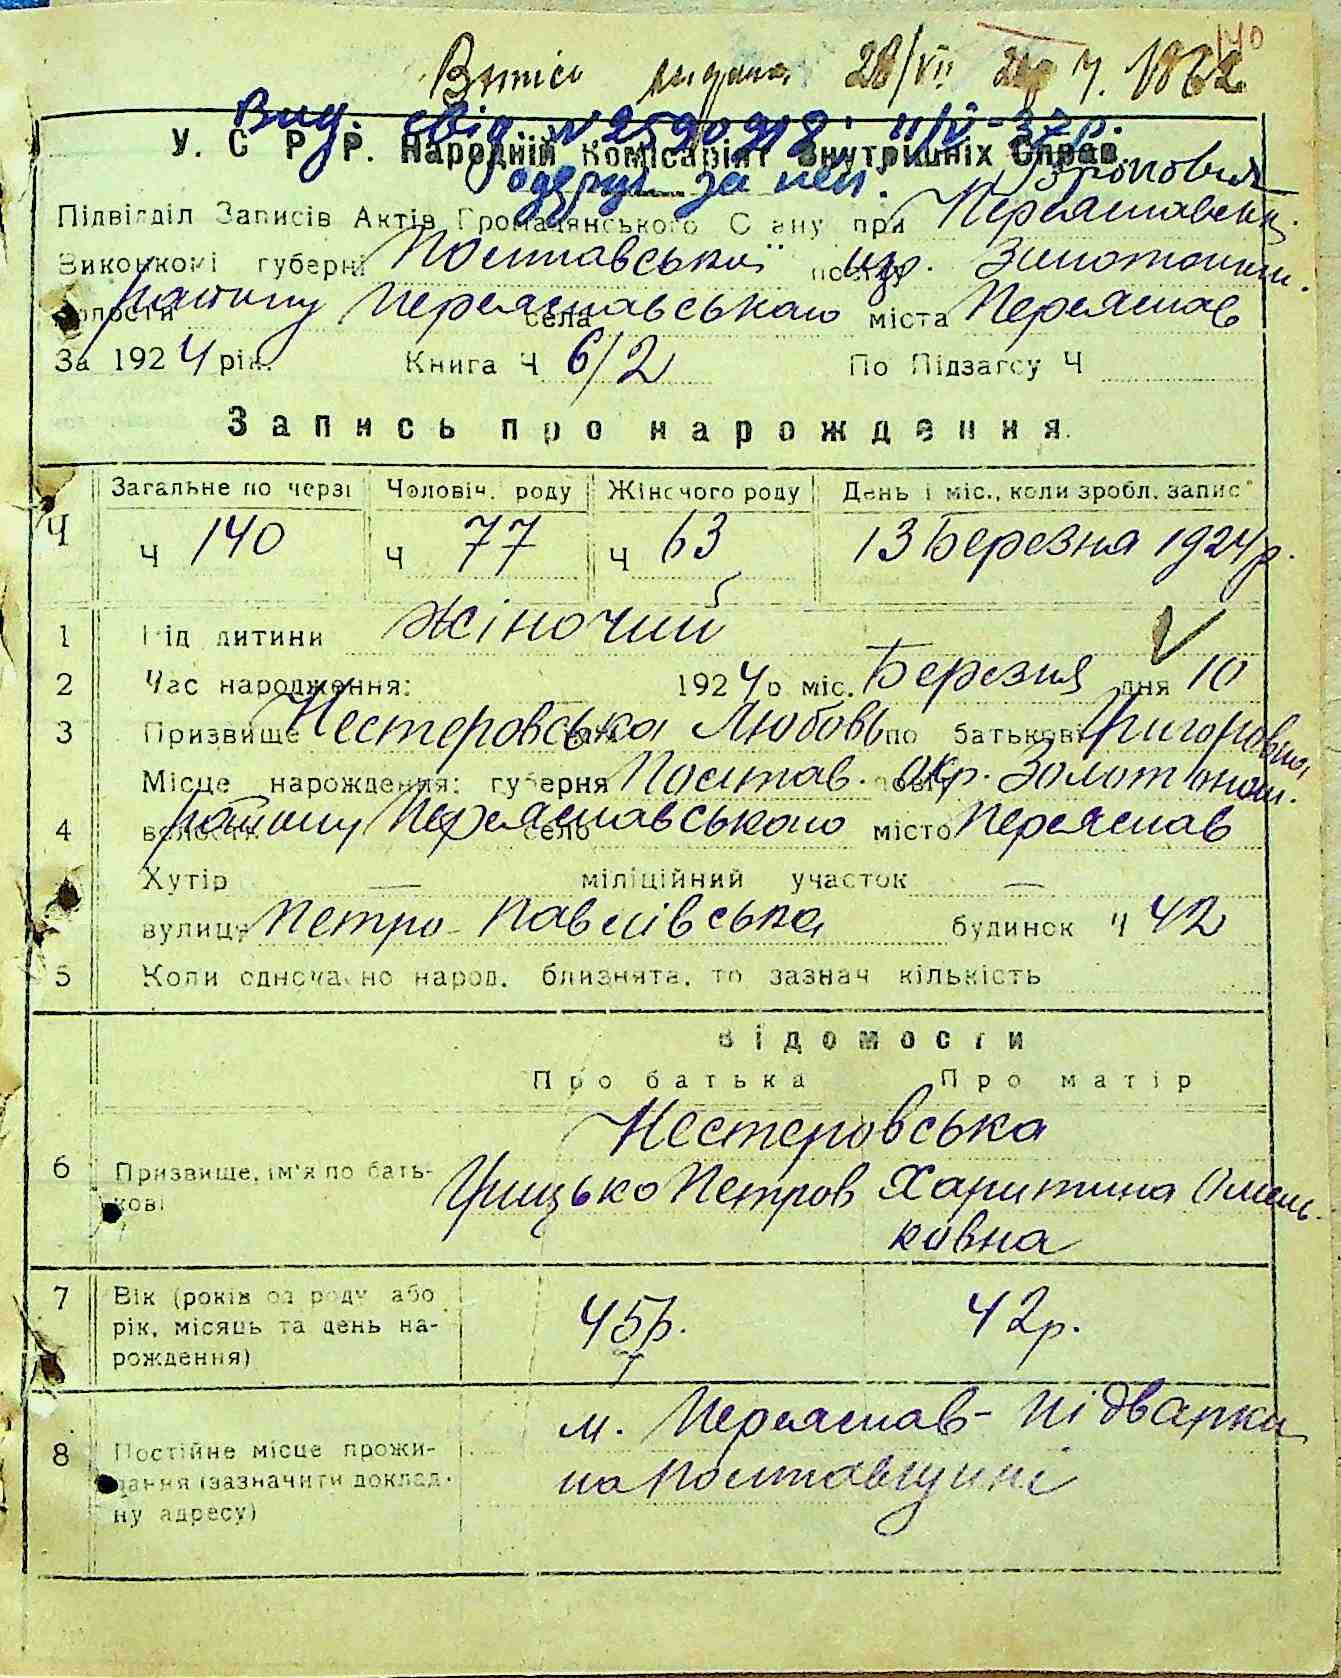 140
Витяг видана 28/VII
Вид. свід. № 2590918. 11/V-37р.
У. С Р Р. Народній Комісаріят Внутрішніх Справ.
одержан за неї.
Підвідділ Записів Актів Громадянського Стану при Переяславськ.
Виконкомі губерні Полтавської повіту окр. Золотоніш.
волости району Переяславського села міста Переяслав
За 1924 рік. Книга Ч 6/2 По Підзагсу Ч
Запись про нарождення
Загальне по черзі Чоловіч. роду Жіночого роду День і міс., коли зробл. запис
Ч Ч 140 Ч 77 Ч 63 13 Березня 1924р.
1 Рід дитини Жіночий
2 Час народження: 1924 р міс. Березня дня 10
3 Призвище Нестеровська Любовь по батькові Григоровна
Місце нарождення: губерня Полтав. повіт окр. Золотонош.
4 волость району Переяславського село місто Переяслав
Хутір — міліційний участок —
вулиця Петро-Павлівська будинок Ч 42
5 Коли одночасно народ. близнята, то зазнач кількість
Відомости
Про батька Про матір
Нестеровська
6 Призвище, ім'я по бать- Грицько Петров Харитина Омель-
кові ковна
7 Вік (років од роду або 45р. 42р.
рік, місяць та день на-
рождення)
м. Переяслав-Підварки
8 Постійне місце прожи- на Полтавщині
вання (зазначити доклад-
ну адресу)